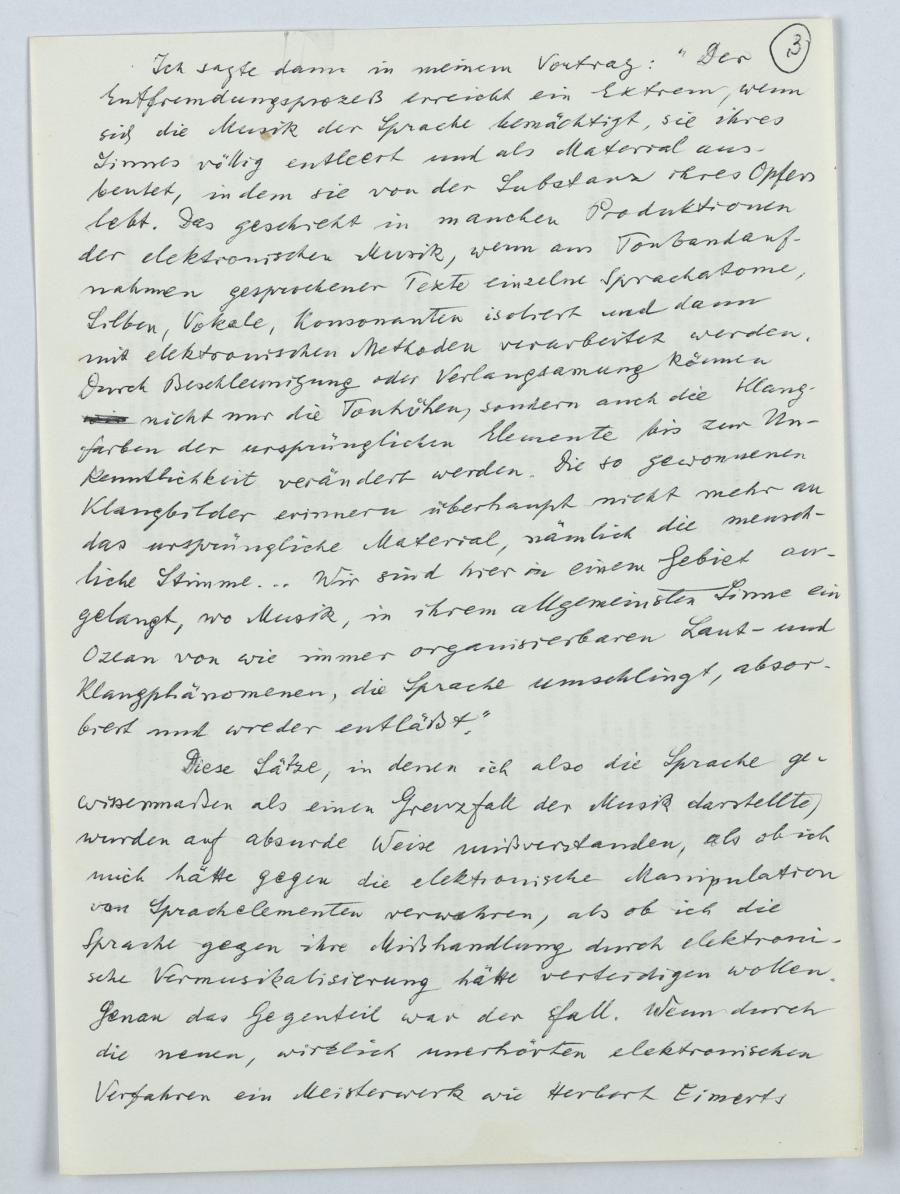 3
Ich sagte dann in meinem Vortrag: "Der
Entfremdungsprozeß erreicht ein Extrem, wenn
sich die Musik der Sprache bemächtigt, sie ihres
Sinnes völlig entleert und als Material aus-
beutet, indem sie von der Substanz ihres Opfers
lebt. Das geschieht in manchen Produktionen
der elektronischen Musik, wenn aus Tonbandauf-
nahmen gesprochener Texte einzelne Sprachatome,
Silben, Vokale, Konsonanten isoliert und dann
mit elektronischen Methoden verarbeitet werden.
Durch Beschleunigung oder Verlangsamung können
nicht nur die Tonhöhen, sondern auch die Klang-
farben der ursprünglichen Elemente bis zur Un-
kenntlichkeit verändert werden. Die so gewonnenen
Klangbilder erinnern überhaupt nicht mehr an
das ursprüngliche Material, nämlich die mensch-
liche Stimme... Wir sind hier in einem Gebiet an-
gelangt, wo Musik, in ihrem allgemeinsten Sinne ein
Ozean von wie immer organisierbaren Laut- und
Klangphänomenen, die Sprache umschlingt, absor-
biert und wieder entläßt."
Diese Sätze, in denen ich also die Sprache ge-
wissermaßen als einen Grenzfall der Musik darstellte,
wurden auf absurde Weise mißverstanden, als ob ich
mich hätte gegen die elektronische Manipulation
von Sprachelementen verwahren, als ob ich die
Sprache gegen ihre Mißhandlung durch elektroni-
sche Vermusikalisierung hätte verteidigen wollen.
Genau das Gegenteil war der Fall. Wenn durch
die neuen, wirklich unerhörten elektronischen
Verfahren ein Meisterwerk wie Herbert Eimerts